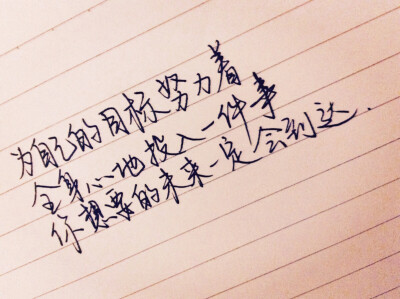 为自己的目标努力着
全身心地投入一件事
你想要的未来一定会到达.